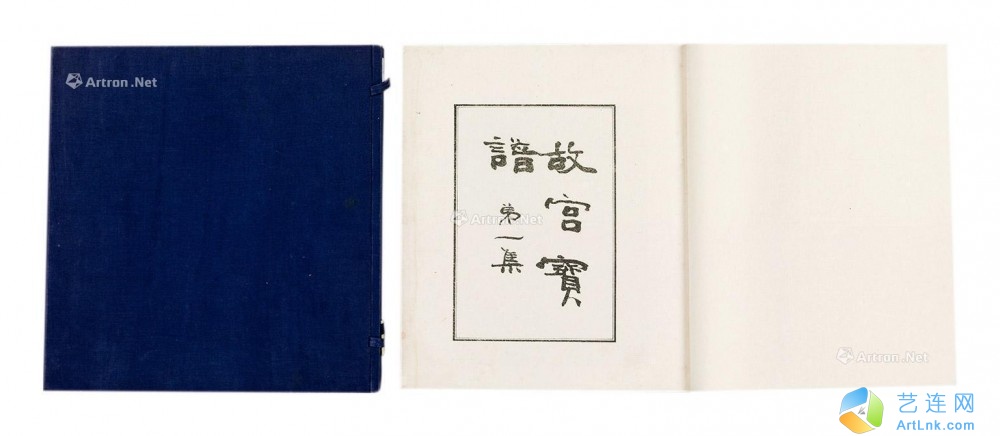 Artron.Net
故宫寶
譜
第一集
Artron.Net
Artron.Net
艺连网
ArtLnk.com